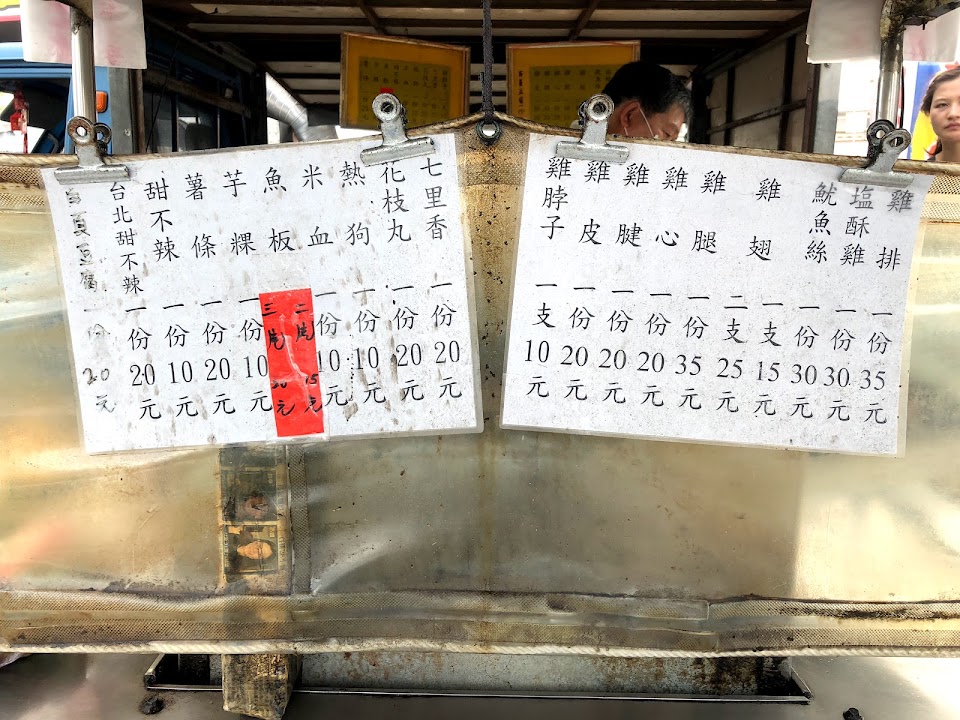 雞排 一份35元
塩酥雞 一份30元
魷魚絲 一份30元
雞翅 一支15元
二支25元
雞腿 一份35元
雞心 一份20元
雞腱 一份20元
雞皮 一份20元
雞脖子 一支10元
七里香 一份20元
花枝丸 一份20元
熱狗 一份10元
米血 一份10元
魚板 二片15元
三片 元
芋粿 一份10元
薯條 一份20元
甜不辣 一份10元
台北甜不辣 一份20元
百頁豆腐 一份20元